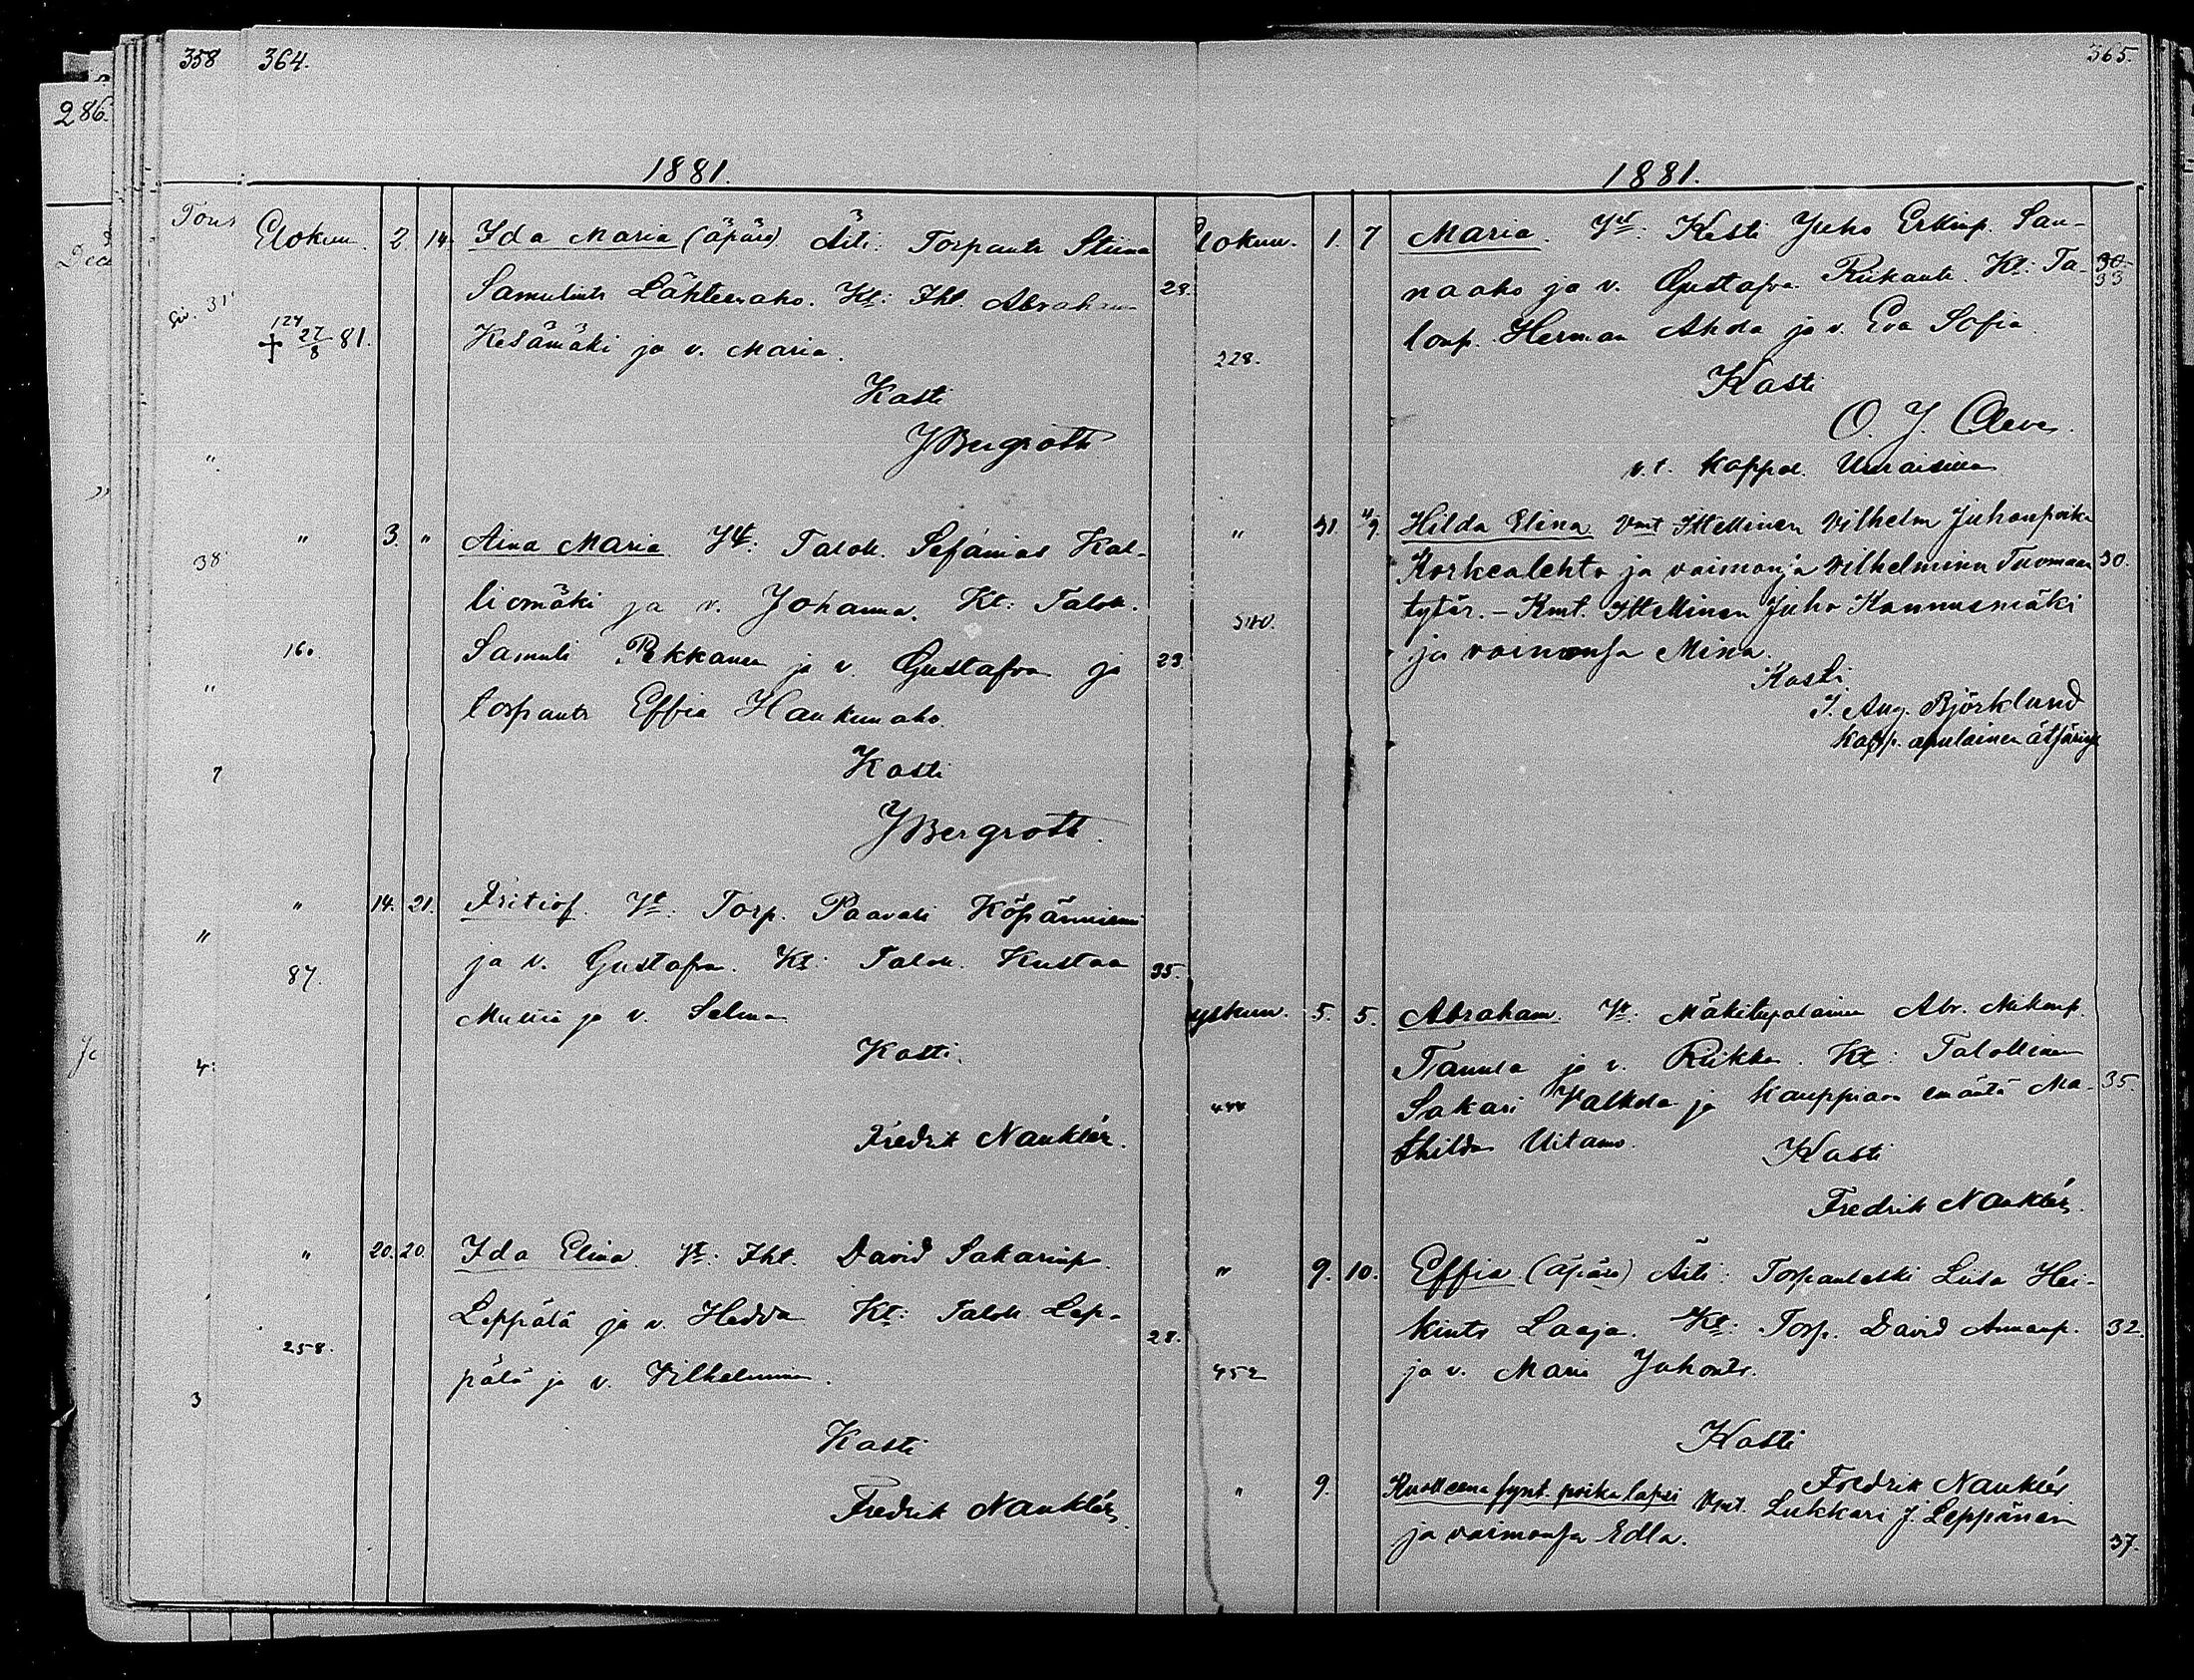 358
364.
286.
1881.
Elokuu. 2 14. Ida Maria (äpärä) Äiti: Torpantr Stiina
Samulintr Lähteenaho. Kt: Iht. Abraham 28.
124
+ 27/8 81.
Kesämäki ja v. Maria.
Kasti
JBergroth
" 3. " Aina Maria Vt: Talok. Sefanias Kal-
liomäki ja v. Johanna. Kt: Talok.
160
Samuli Pekkanen ja v. Gustafva ja 23
torpantr Effia Haukunaho.
Kasti
JBergroth.
" 14. 21. Fritiof. Vt: Torp. Paavali
87.
ja v. Gustafva. Kt: Talok. Kustaa 35.
ja v. Selma
Kasti.
Fredrik Nauklér.
" 20. 20. Ida Elina. Vt: Iht. David Sakarinp.
Leppälä ja v. Hedda Kt: Talok. Lep-
258.
28.
pälä ja v. Vilhelmina.
Kasti
Fredrik Nauklér.
365.
1881.
Elokuu. 1. 7 Maria. Vt: Kesti Juho Erkinp. San-
30
33
naaho ja v. Gustafva Kt: Ta-
228.
lonp. Herman Ahda ja v. Eva Sofia.
Kasti
O. J. Cleve.
v.t. Kappal. Uuraisilla
" 31. 4/9. Hilda Elina Vmt Ittellinen Vilhelm Juhonpoika
Korkealehto ja vaimonsa Vilhelmina Tuomaan 30.
tytär. - Kmt. Ittellinen Juho Kannusmäki
ja vaimonsa Mina.
Kasti
J. Aug. Björklund
Kapp. apulainen
Syskuu. 5. 5. Abraham. Vt: Mäkitupalainen Abr. Mikonp.
Tannila ja v. Riikka. Kt: Talollinen
444
Sakari ja Kauppiaan emäntä Ma- 35.
thilda Uitamo.
Kasti
Fredrik Nauklér.
" 9. 10. Effia (äpärä) Äiti: Torpanleski Liisa Hei-
kintr Laaja. Kt: Torp. David Annanp. 32.
452
ja v. Maria Juhontr.
Kasti
Fredrik Nauklér
" 9. Kuolleena synt. poika lapsi Vmt. Lukkari J. Leppänen
ja vaimonsa Edla. 37.